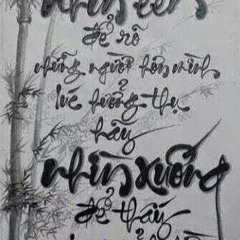 nhìn lên
để rõ
những người hơn mình
lúc hưởng thụ
hãy
nhìn xuống
để thấy